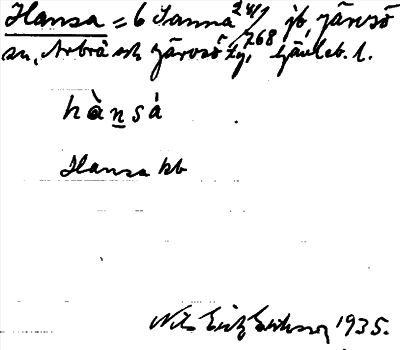 Hansa = 6 Sanna 2 41/768 jb, Järvsö
sn, Arbrå och Järvsö tg, Gävleb. l.
hànsá
Hansa hb
Nils Eric Eriksson 1935.